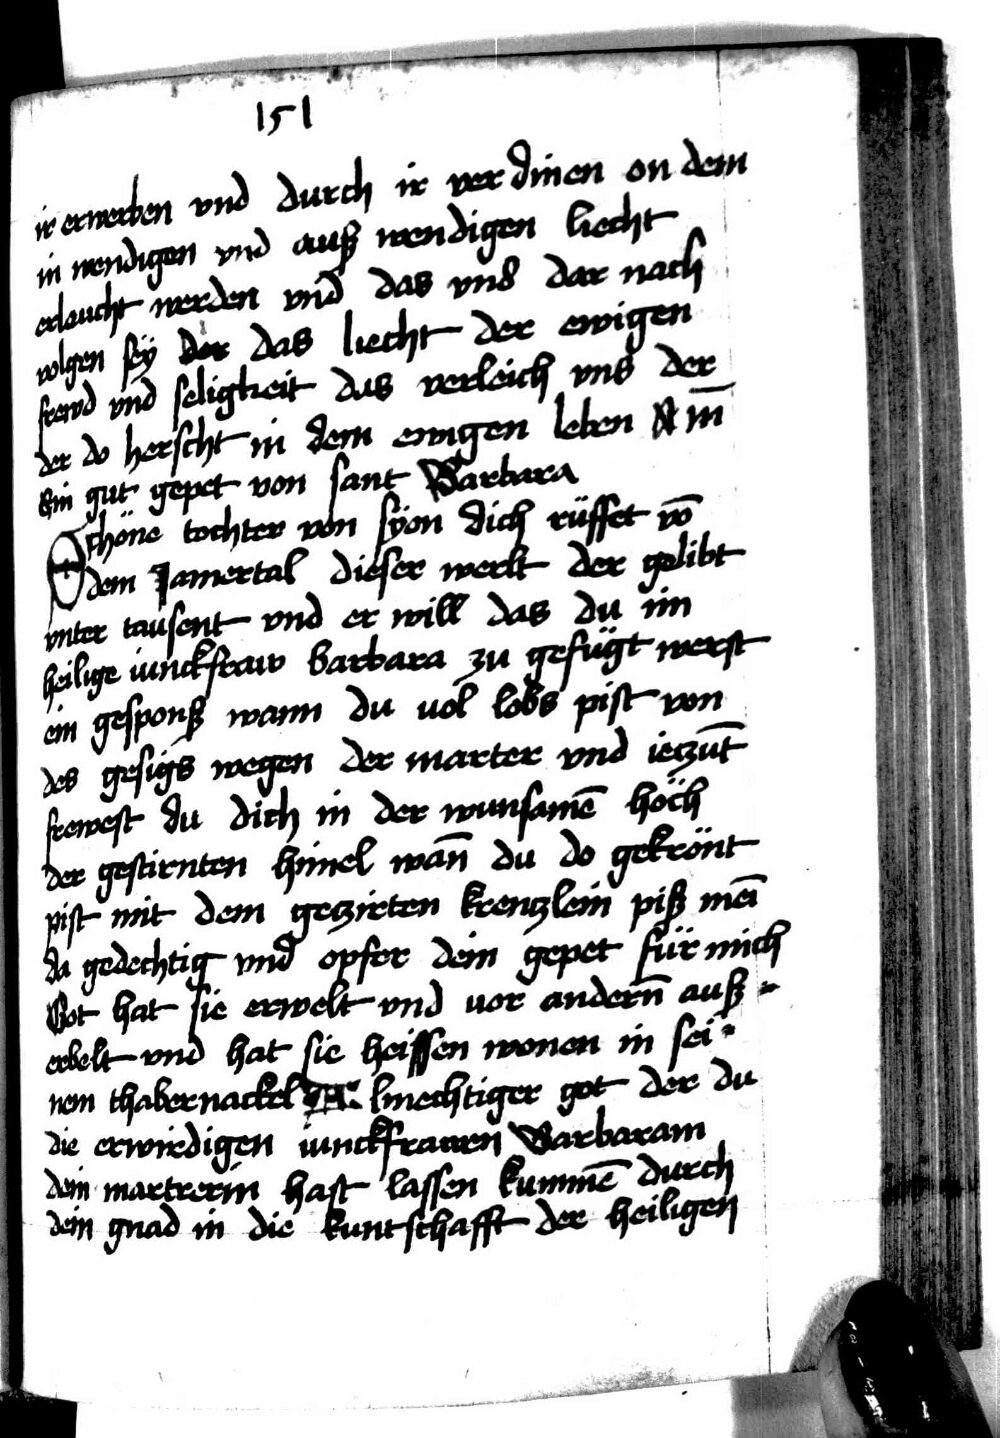 151
ir erwerben vnd durch ir ver dinen on dem
in wendigen vnd auß wendigen liecht
erleucht werden vnd das vns dar nach
volgen sey der das liecht der ewigen
frewd vnd seligkeit das verleich vns der
der do herscht in dem ewigen leben Am̄
Ein gut gepet von sant Barbara
O Schöne tochter von syon dich rüffet vō
dem Jamertal dieser werlt der gelibt
vnter tausent vnd er will das du im
heilige iunckfraw barbara zu gefügt werst
ein gesponß wann du vol lobs pist von
des gesigs wegen der marter vnd ieczūt
frewest du dich in der wunsamē höch
der gestirnten himel wan̄ du do gekrönt
pist mit dem geczirten krenczlein piß mei
da gedechtig vnd opfer dein gepet für mich
Got hat sie erwelt vnd vor andern̄ auß =
erbelt vnd hat sie heissen wonen in sei =
nem thabernackel A lmechtiger got der du
die erwirdigen iunckfrawen Barbaram
dein martrerin hast lassen kummē durch
dein gnad in die kuntschafft der heiligen